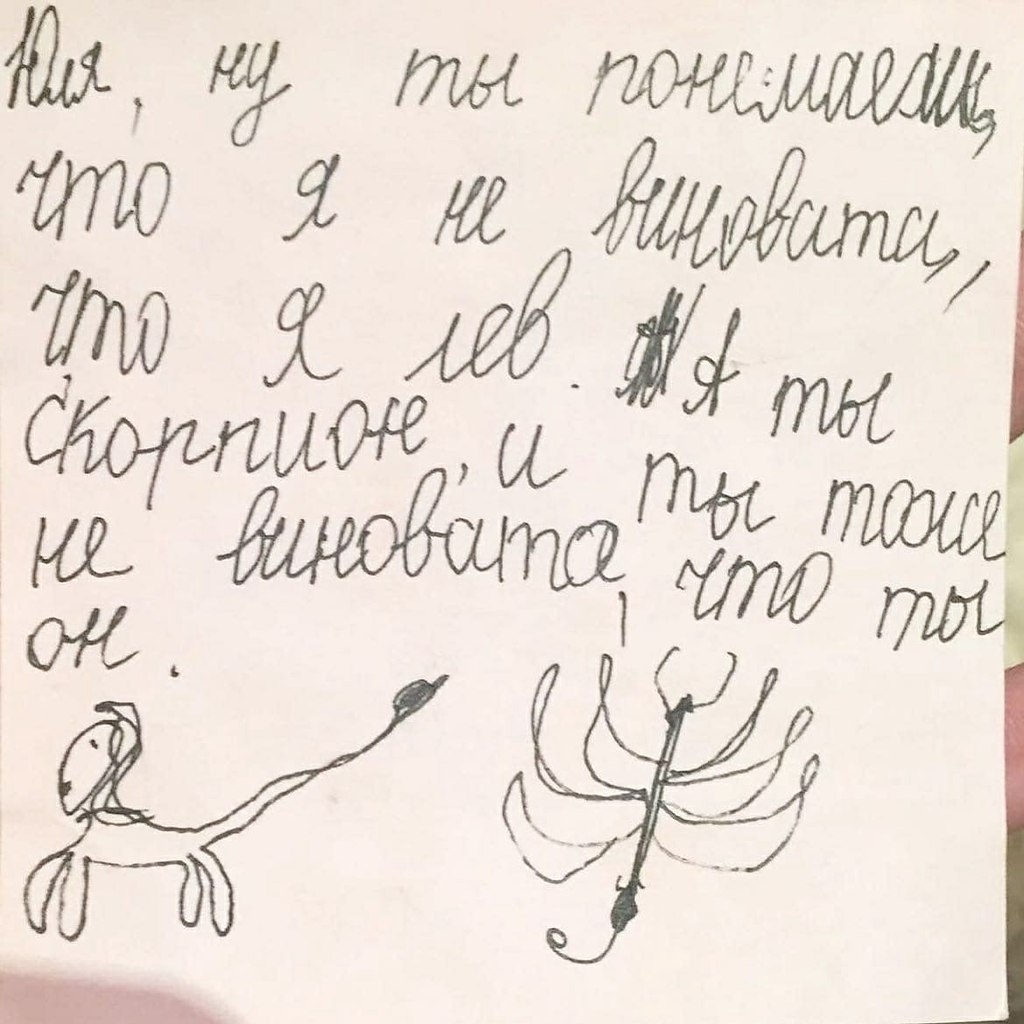 Юля, ну ты понемаешь,
что я не виновата,
что я лев. А ты
скорпион, и ты тоже
не виновата, что ты
он.